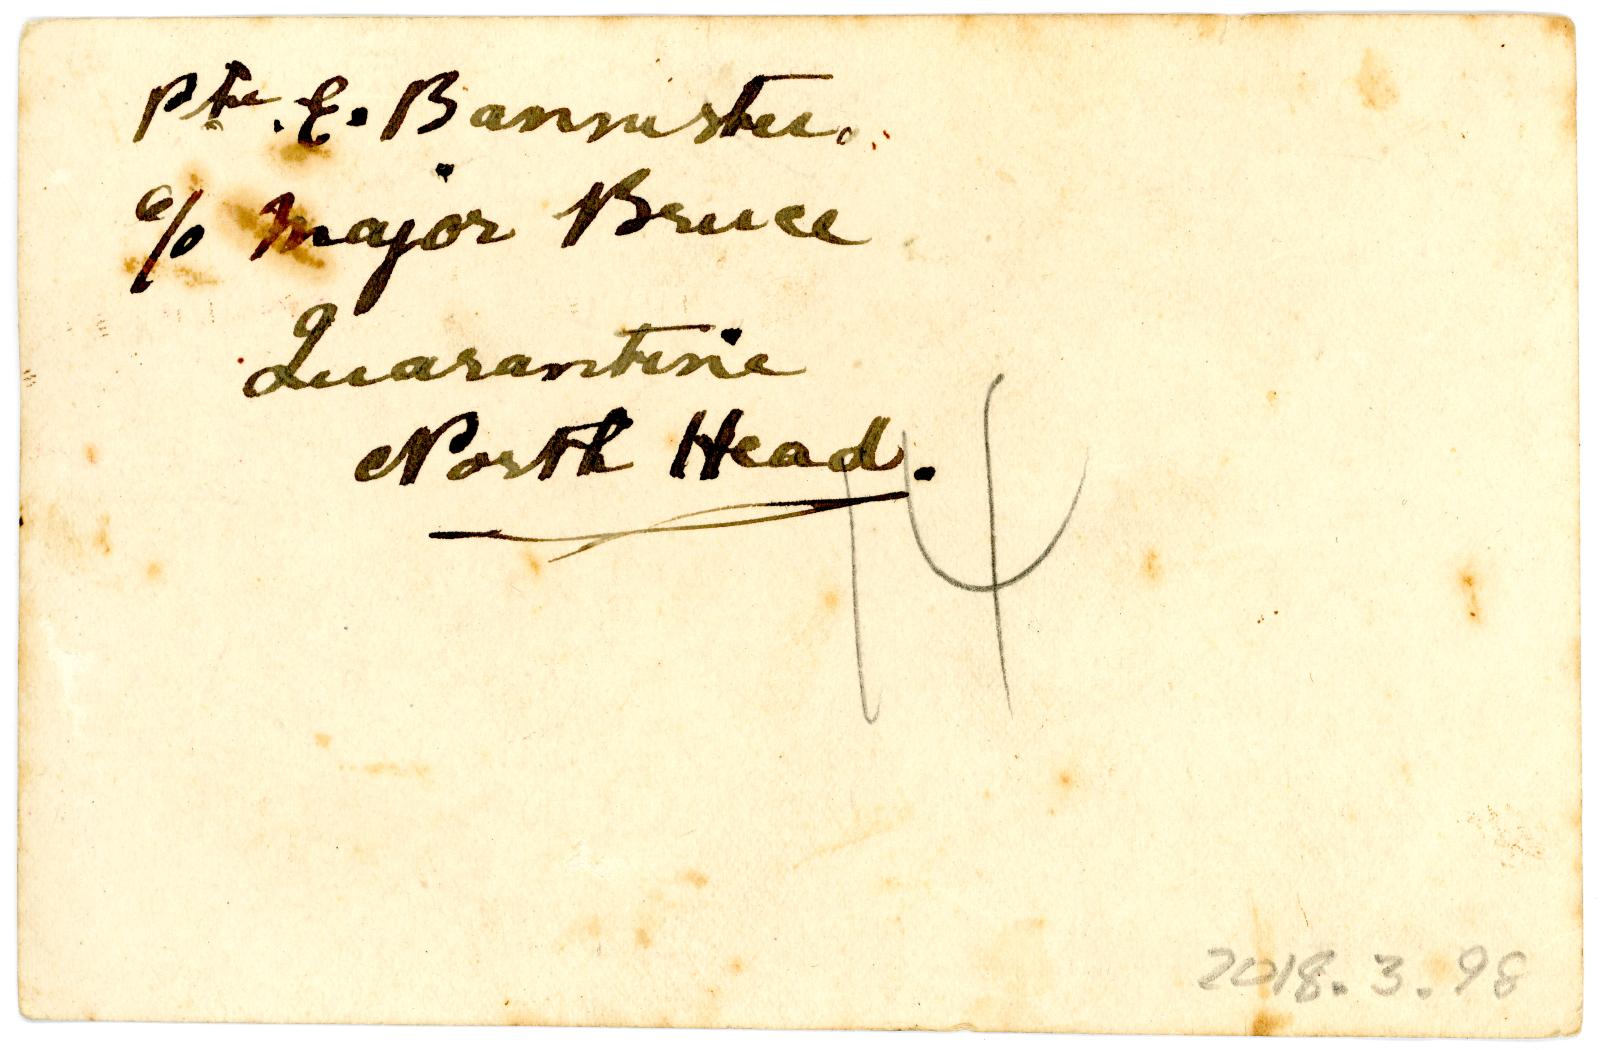 Pte. E. Bannister.
c/o Major Bruce
Quarantine
North Head.
14
2018.3.98